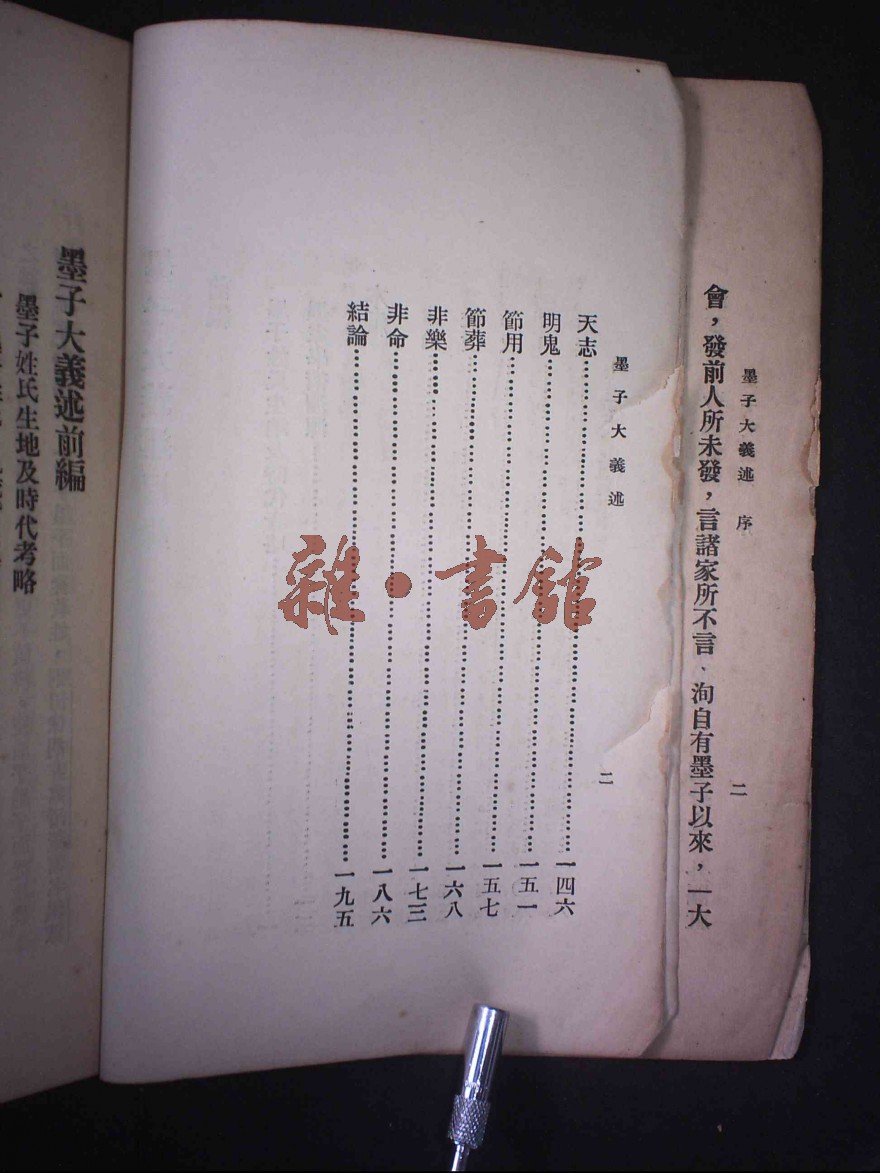 墨子大義述 序 二
會，發前人所未發，言諸家所不言、洵自有墨子以來，一大
墨子大義述 二
天志 一四六
明鬼 一五一
節用 一五七
節葬 一六八
非樂 一七三
非命 一八六
結論 一九五
雜·書館
墨子大義述前編
墨子姓氏生地及時代考略